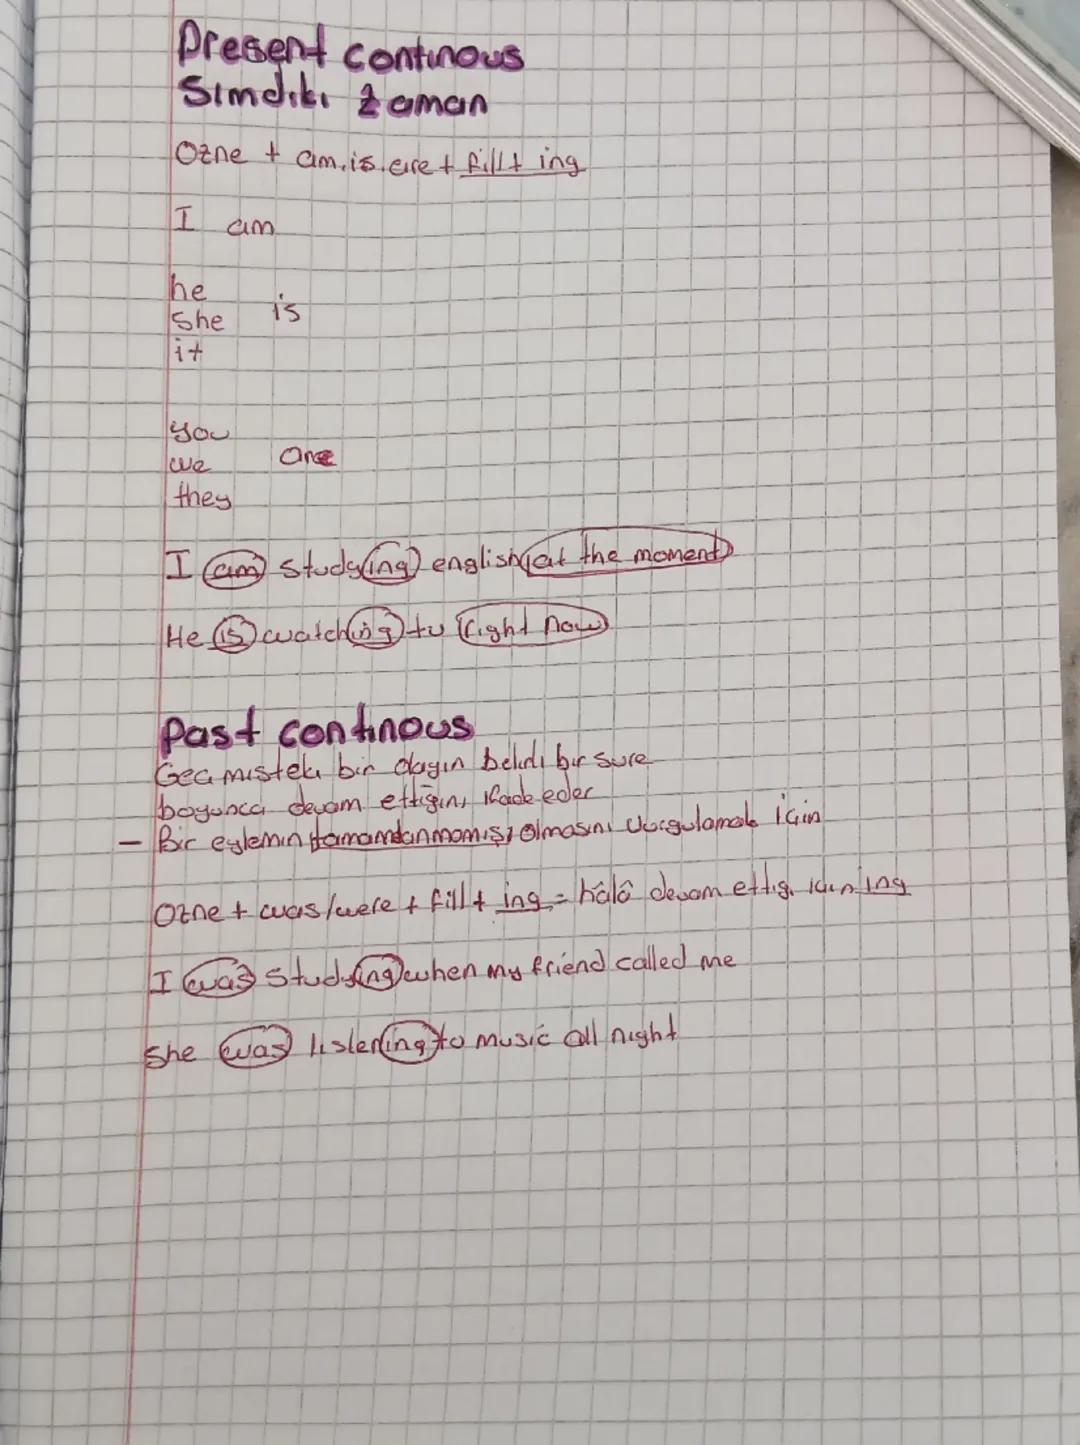 Present continous
Simdiki zaman
Ozne + am, is, are + fill + ing
I am
he
she is
it
you
we are
they
I am studying english at the moment
He is watching tv right now
Past continous
Gecmisteki bir olayın belirli bir sure
boyunca devam ettiğini ifade eder
- Bir eylemin tamamlanmamış olmasını vurgulamak için
Ozne + was/were + fill + ing = hâlâ devam ettiği için ing
I was studying when my friend called me
She was listening to music all night